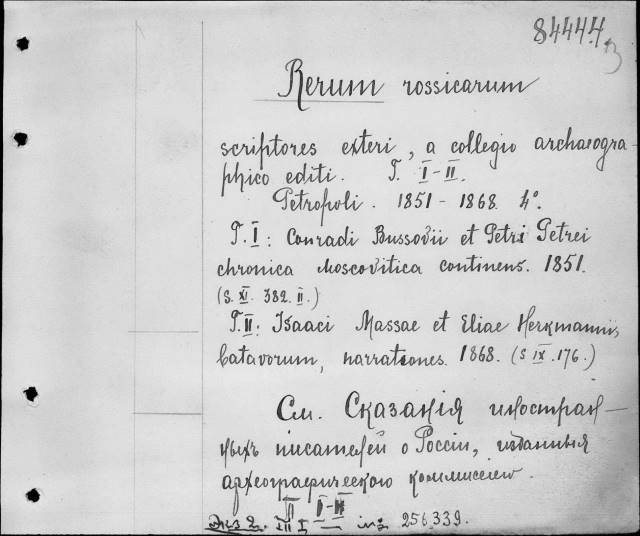 84444
Rerum rossicarum
scriptores exteri, a collegio archaeogra-
phico editi. T. I-II.
Petropoli. 1851-1868. 4°.
T. I: Conradi Bussovii et Petri Petrei
chronica Moscovitica continens. 1851.
(S. XI. 382. II.)
T. II: Isaaci Massae et Eliae Herkmanni,
batavorum, narrationes. 1868. (S IX. 176.)
См. Сказанія иностран-
ныхъ писателей о Россіи, изданныя
археографическою коммиссіею.
II I-II
экз 2. III I — inv 256.339.